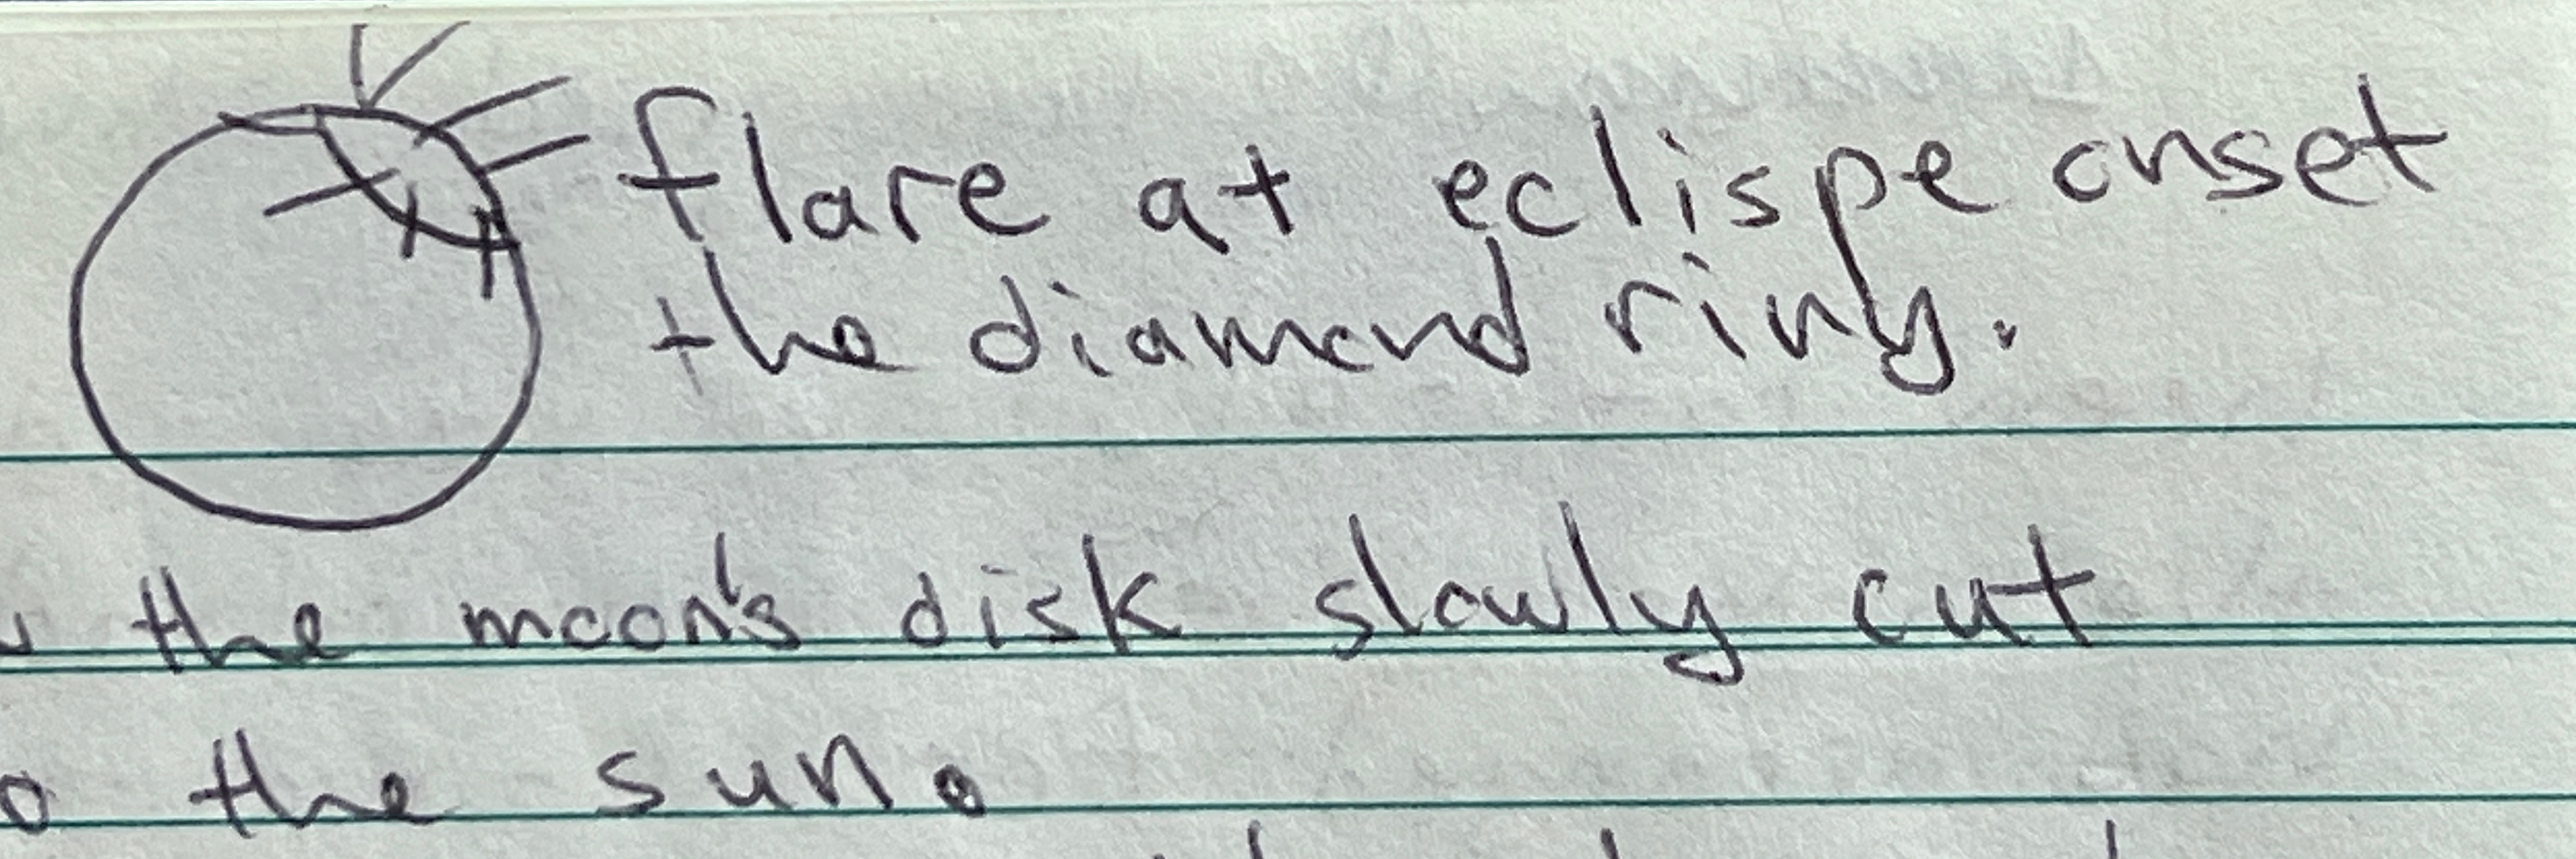 flare at eclispe onset
the diamond ring.
the moon's disk slowly cut
the sun.